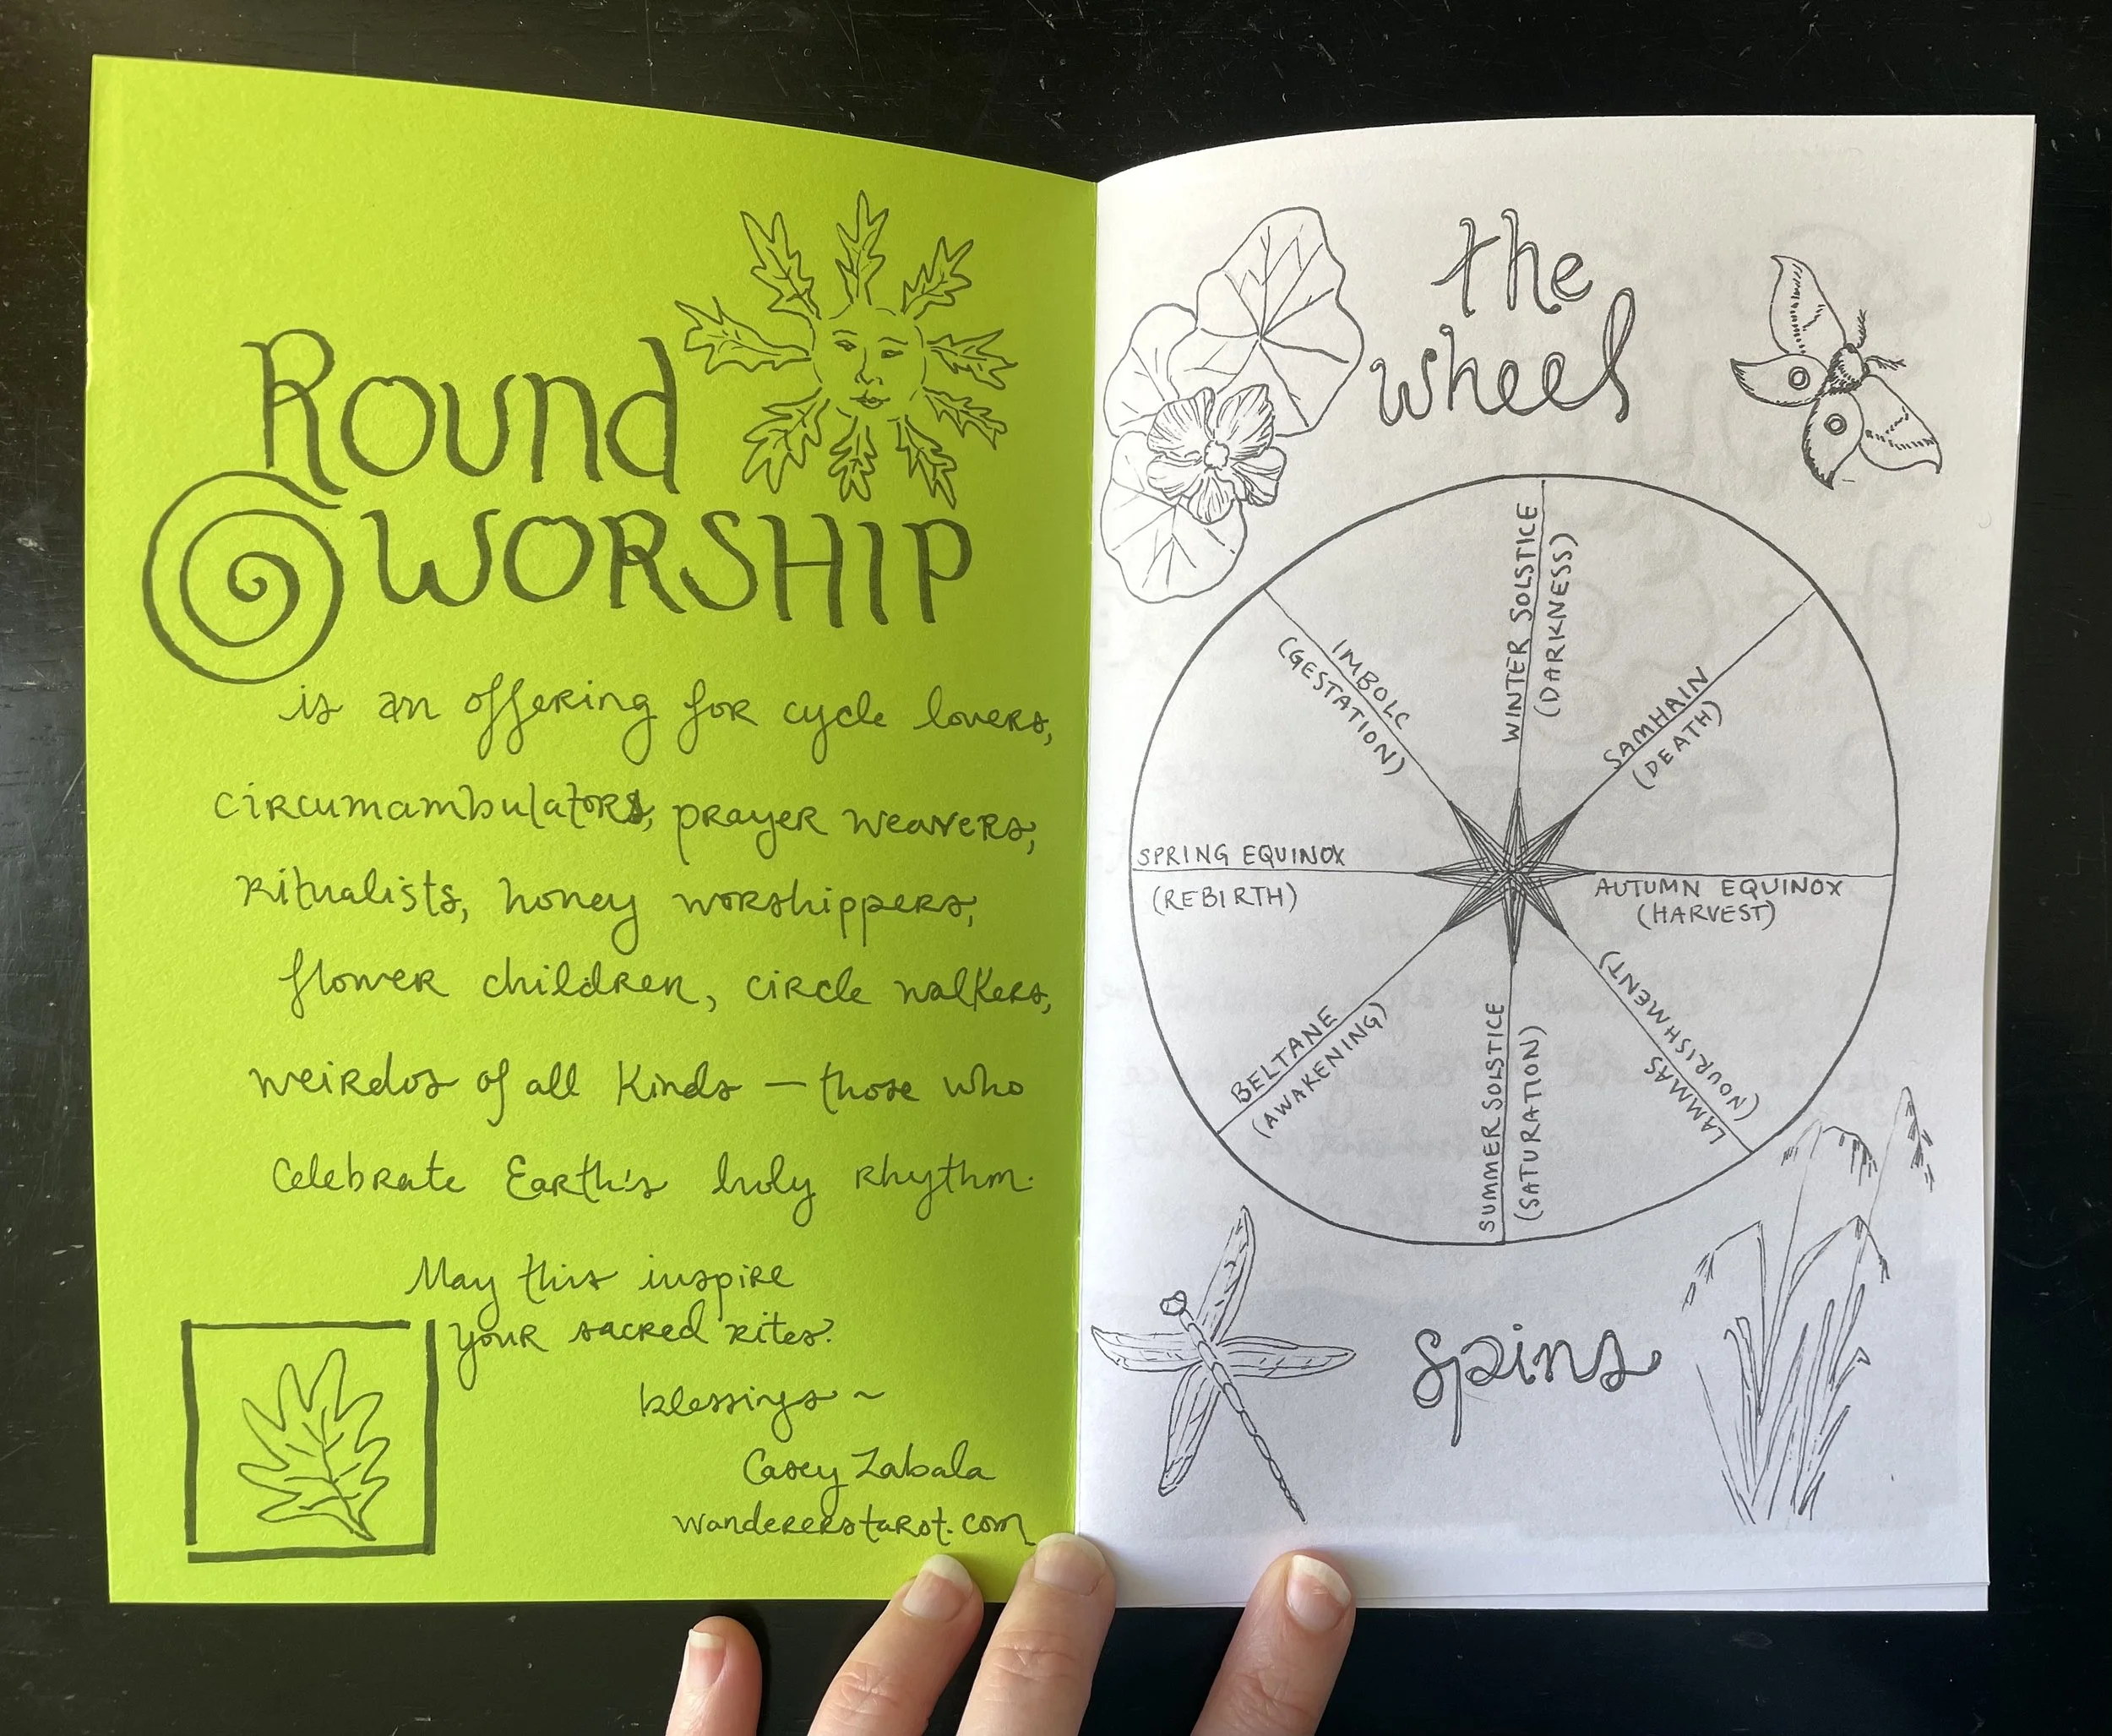 Round
WORSHIP
is an offering for cycle lovers,
circumambulators, prayer weavers,
ritualists, honey worshippers,
flower children, circle walkers,
weirdos of all kinds — those who
celebrate Earth's holy rhythm.
May this inspire
your sacred rites.
blessings ~
Casey Zabala
wandererstarot.com
the
wheel
WINTER SOLSTICE
(DARKNESS)
IMBOLC
(GESTATION)
SAMHAIN
(DEATH)
SPRING EQUINOX
(REBIRTH)
AUTUMN EQUINOX
(HARVEST)
BELTANE
(AWAKENING)
SUMMER SOLSTICE
(SATURATION)
LAMMAS
(NOURISHMENT)
spins